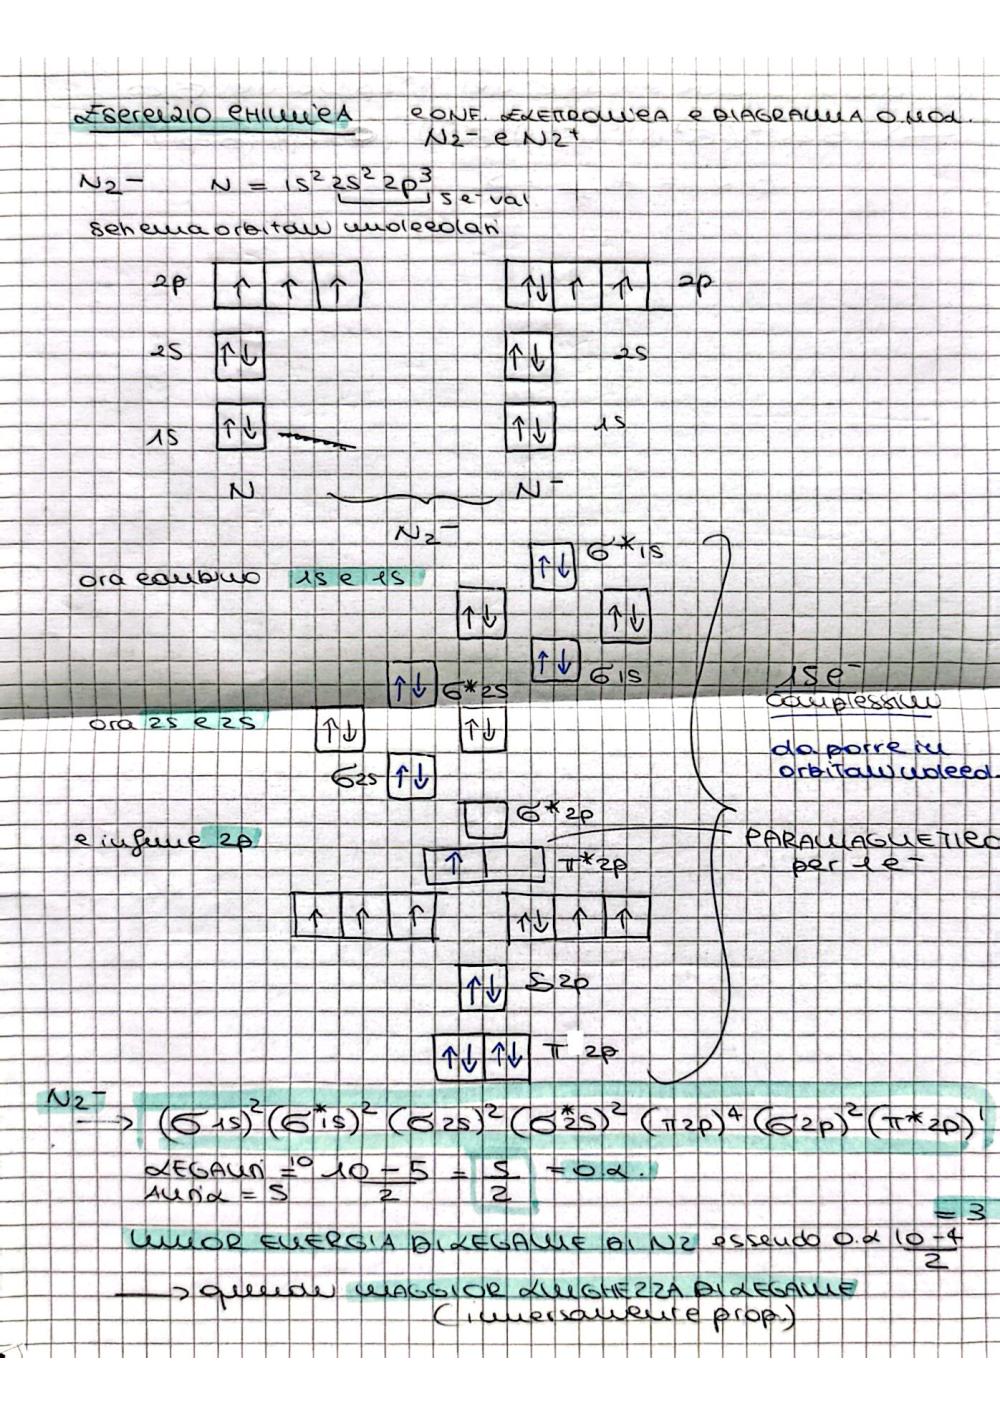 Esercizio CHIMICA CONF. ELETTRONICA e DIAGRAMMA O.MOL.
N2- e N2+
N2- N = 1s² 2s² 2p³
5 e- val
schema orbitali molecolari
2p ↑ ↑ ↑ ↑↓ ↑ ↑ 2p
2s ↑↓ ↑↓ 2s
1s ↑↓ ↑↓ 1s
N N-
N2-
↑↓ σ*1s
ora combino 1s e 1s
↑↓ ↑↓
↑↓ σ1s
↑↓ σ*2s
15 e-
complessivi
ora 2s e 2s ↑↓ ↑↓
da porre in
orbitali molec.
σ2s ↑↓
σ*2p
e infine 2p
↑ π*2p
PARAMAGNETICO
per 1 e-
↑ ↑ ↑ ↑↓ ↑ ↑
↑↓ σ2p
↑↓ ↑↓ π 2p
N2-
→ (σ1s)² (σ*1s)² (σ2s)² (σ*2s)² (π2p)⁴ (σ2p)² (π*2p)¹
LEGANTI = 10 10-5/2 = 5/2 = O.L.
ANTIL = 5
MINOR ENERGIA DI LEGAME DI N2 essendo O.L 10-4/2 = 3
→ quindi MAGGIOR LUNGHEZZA DI LEGAME
(inversamente prop.)